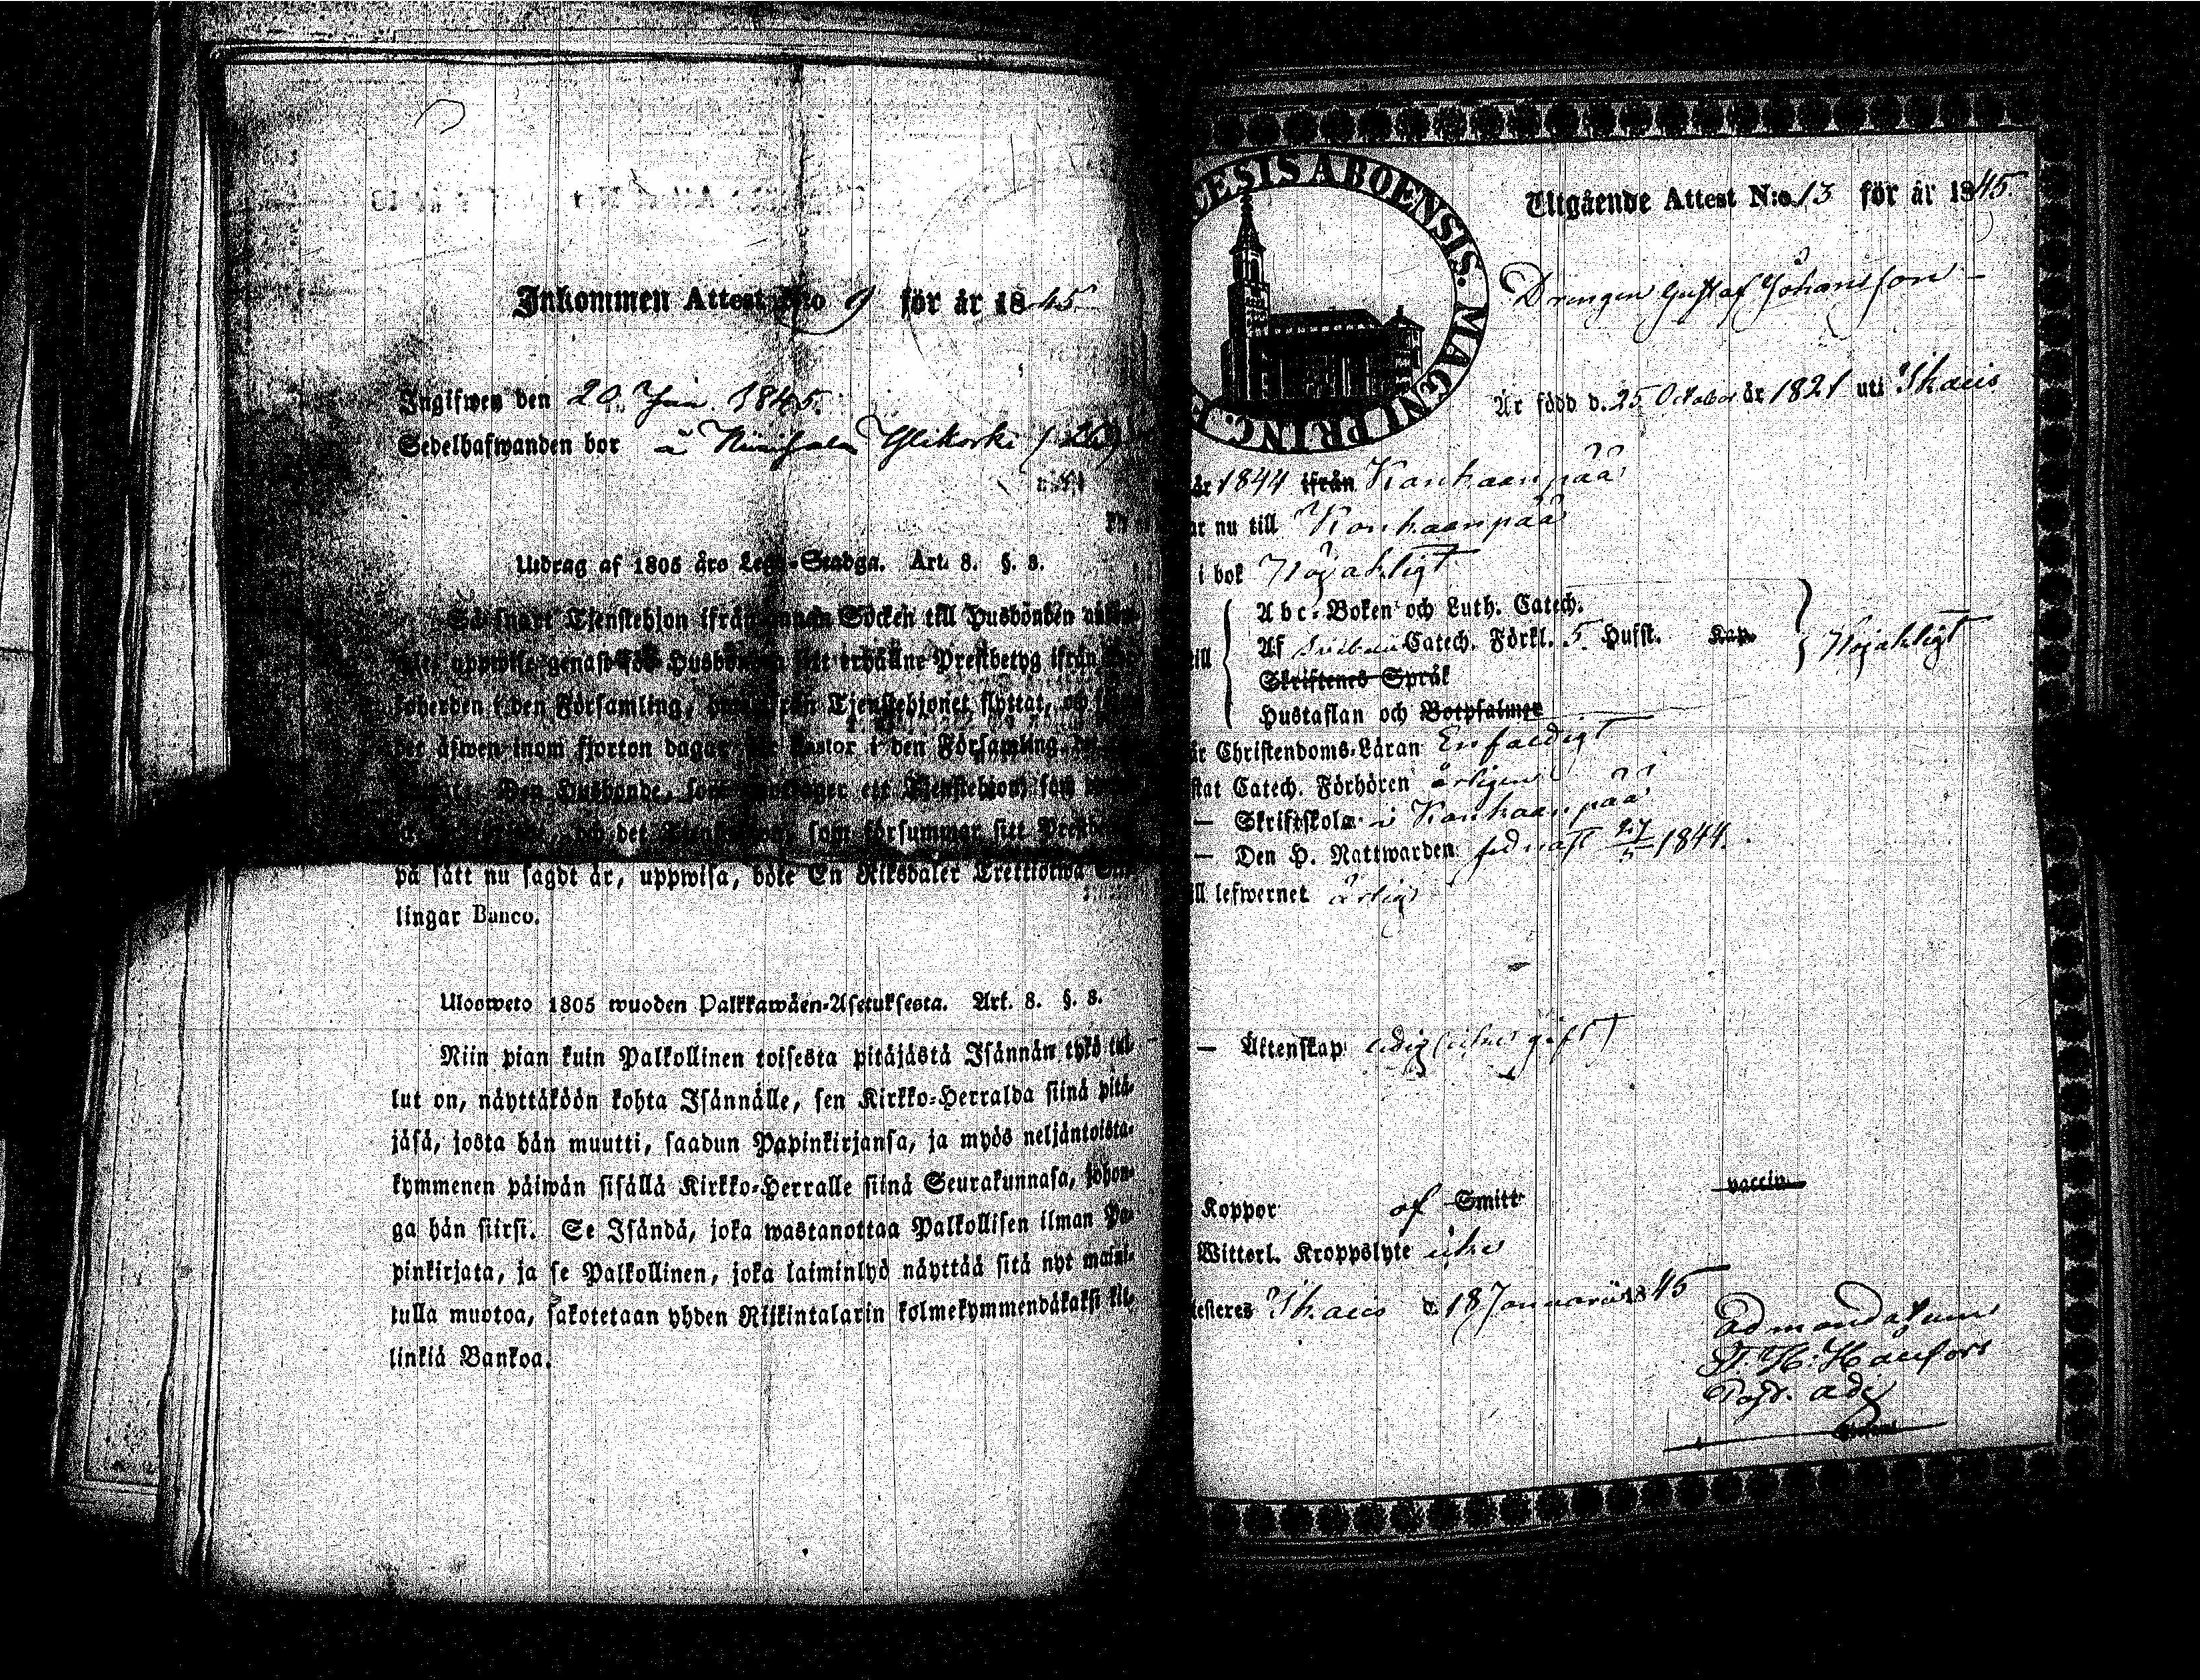 Inkommen Attest N:o 9 för år 1845
Ingifwen den 20 Jan 1845.
Sedelhafwanden bor å Ylikoski (26)
Utdrag af 1805 års Lego-Stadga. Art. 8. §. 8.
Så snart Tjenstehjon ifrån annan Socken till Husbonden
uppwise genast för Husbonden sitt erhållne Prestbetyg ifrån
i den Församling, ifrån Tjenstehjonet flyttat, och
äfwen inom fjorton dagar Pastor i den Församling,
Den Husbonde, som ett Tjenstehjon, som
det som försummar sitt
på sätt nu sagdt är, uppwisa, böte En Riksdaler Trettiotwå
lingar Banco.
Ulosweto 1805 wuoden Palkkawäen-Asetuksesta. Art. 8. §. 8.
Niin pian kuin Palkollinen toisesta pitäjästä Isännän tykö tul-
lut on, näyttäköön kohta Isännälle, sen Kirkko-Herralda siinä pitä-
jäsä, josta hän muutti, saadun Papinkirjansa, ja myös neljäntoista-
kymmenen päiwän sisällä Kirkko-Herralle siinä Seurakunnasa, johon-
ga hän siirsi. Se Isändä, joka wastanottaa Palkollisen ilman Pa-
pinkirjata, ja se Palkollinen, joka laiminlyö näyttää sitä nyt maini-
tulla muotoa, sakotetaan yhden Riikintalarin kolmekymmendäkaksi kil-
linkiä Bankoa.
CESIS ABOENSIS. MAGNI PRINC. F
Utgående Attest N:o 13 för år 1845
Drengen Gustaf Johansson
Är född d. 25 October år 1821 uti Ikalis
år 1844 ifrån Kankaanpää
ar nu till Kankaanpää
i bok Nöjaktigt
Abc-Boken och Luth. Catech.
Af Catech. Förkl. 5 Hufst. Kap.
Nöjaktigt
Skriftenes Språk
Hustaflan och Botpsalmer
är Christendoms-Läran Enfaldigt
stat Catech. Förhören årligen
— Skriftskola i Kankaanpää
— Den H. Nattwarden sednast 27/5 1844.
ill lefwernet ärlig
— Äktenskap ledig (icke gift)
Koppor af Smitt vaccin
Witterl. Kroppslyte icke
testeres Ikalis d. 18 Januarii 1845
Ad mandatum
Past. adj